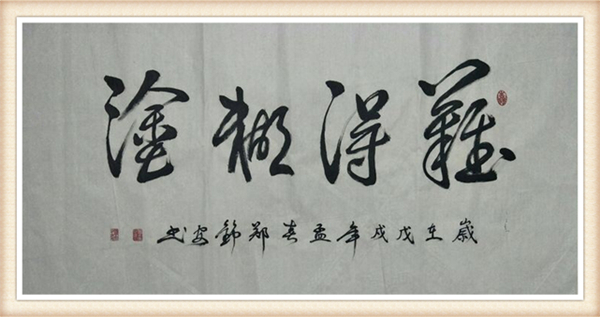 難得糊塗
歲在戊戌年孟春鄒錦安书